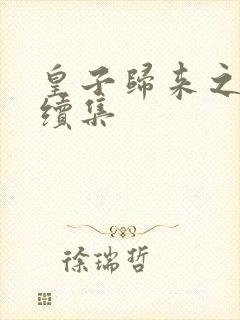 皇子歸來之
續集
徐瑞哲